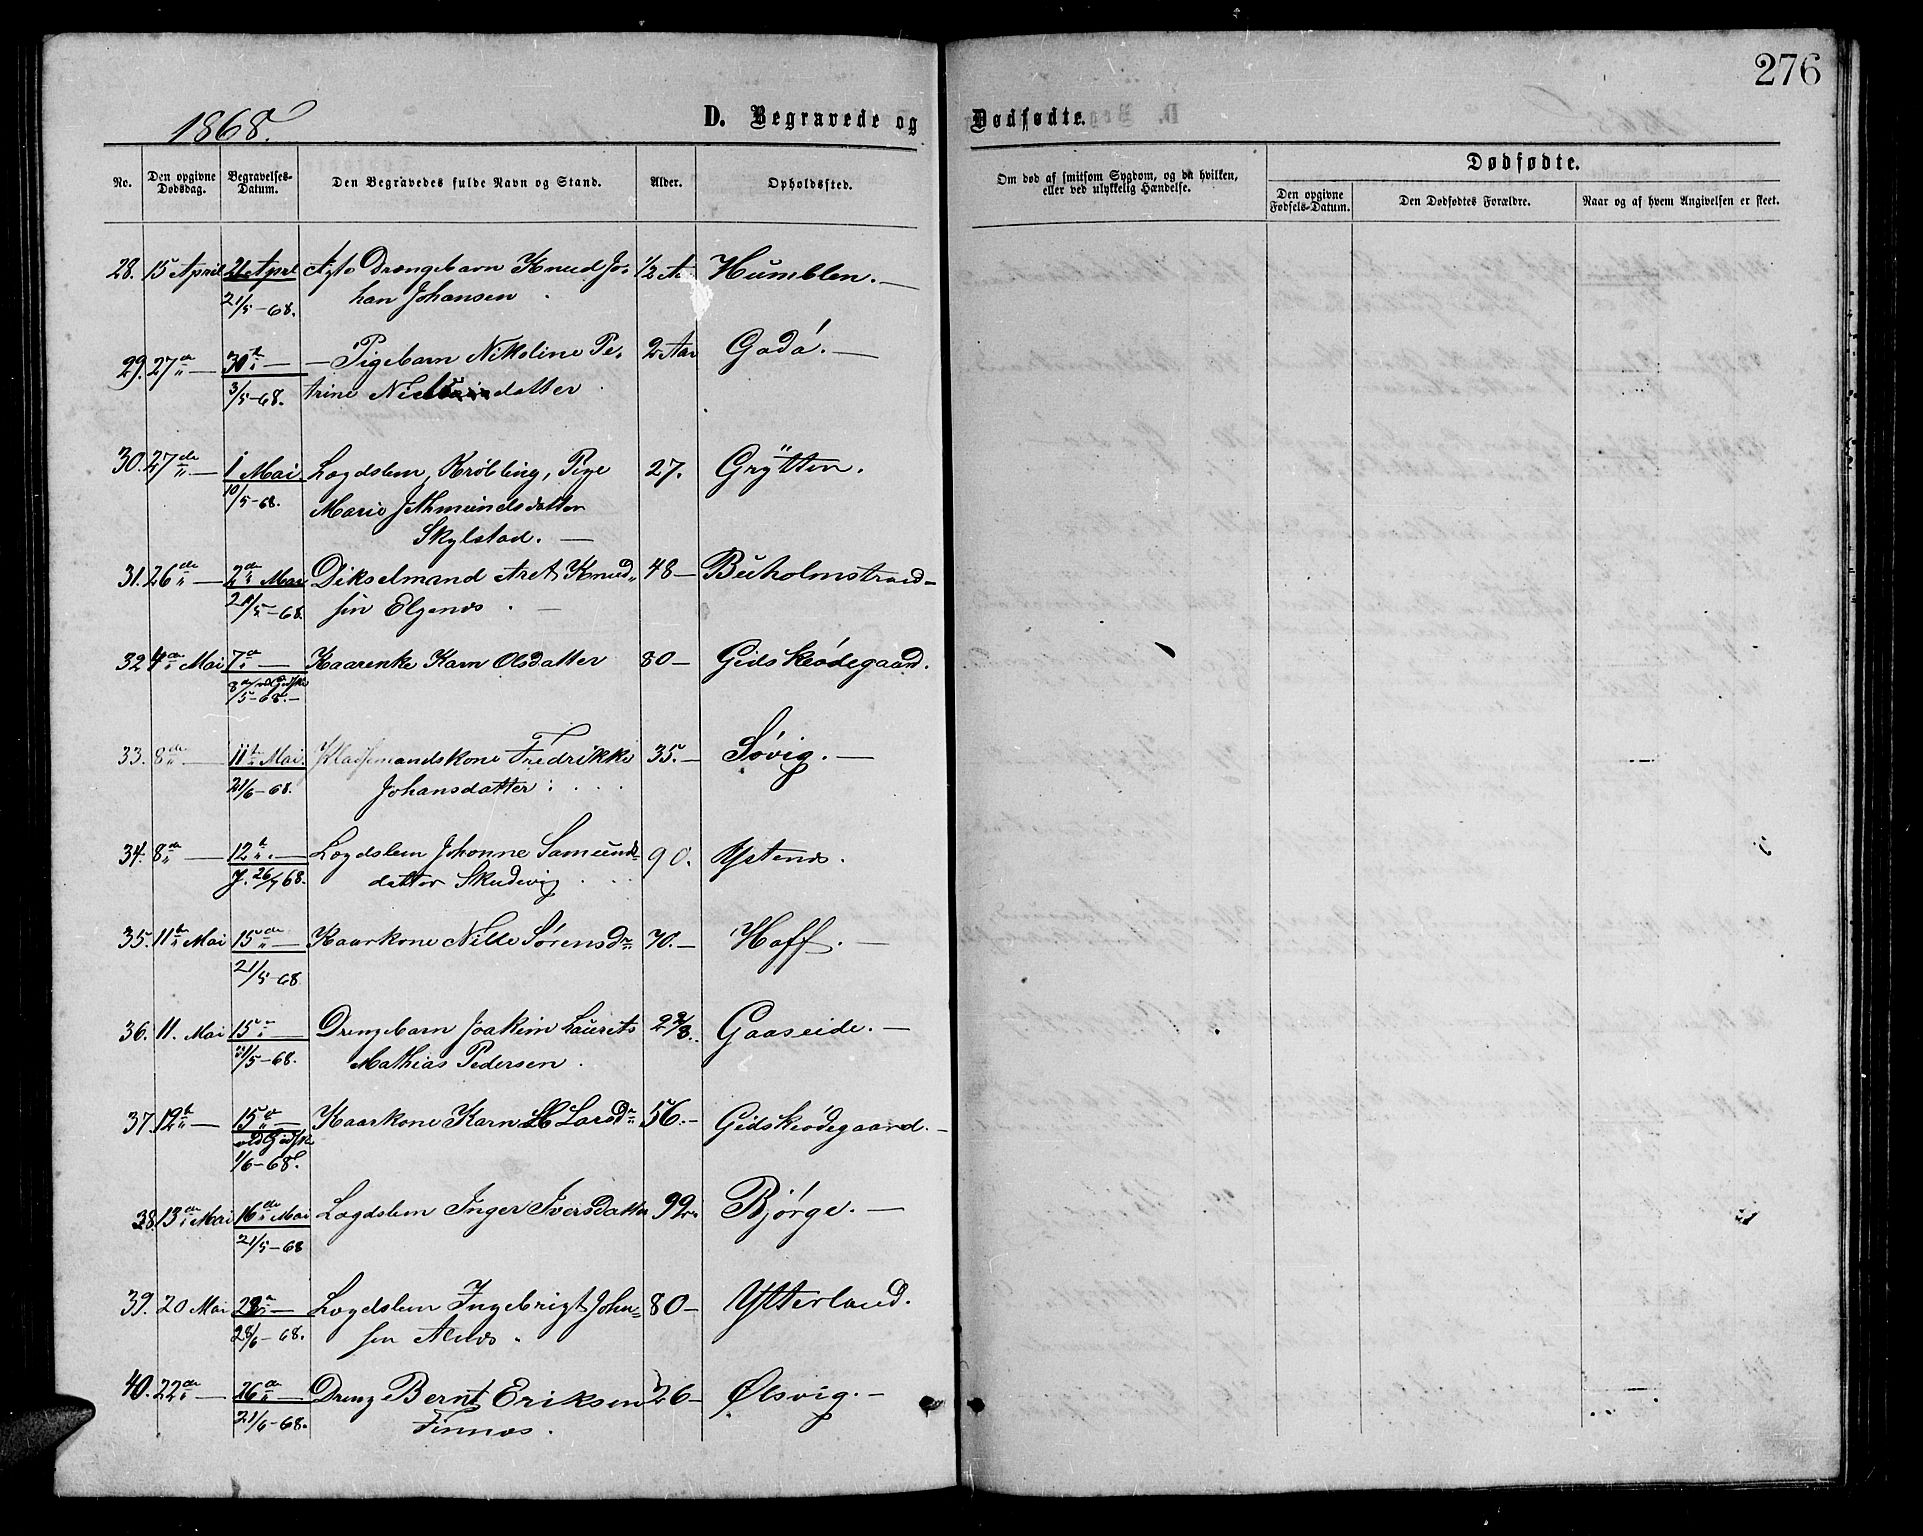 276
1868.
D. Begravede og Dødfødte.
No.
Den opgivne Dødsdag.
Begravelses-Datum.
Den Begravedes fulde Navn og Stand.
Alder.
Opholdssted.
Om død af smitsom Sygdom, og da hvilken, eller ved ulykkelig Hændelse.
Dødfødte.
Den opgivne Fødsels-Datum.
Den Dødfødtes Forældre.
Naar og af hvem Angivelsen er skeet.
28. 15 April 21 April Ægte Drengebarn Knud Jo- 1/2 Aar Humblen. —
21/5-68. han Johansen
29. 27de — 30te — — Pigebarn Nikoline Pe- 2 Aar Godø. —
3/5-68. trine datter
30. 27de — 1 Mai Lægdslem, Krøbling, Pige 27. Grytten.
10/5-68. Marie JAkmundsdatter
Skylstad. —
31. 26de — 2den Mai Dikselmand Aret Knud- 48 — Buholmstrand —
21/5-68. sen Elgenæs. —
32. 4de Mai 7de — Kaarenke Karn Olsdatter 80 — Gidskeødegaard.
8de ved Gidske
/5-68. —
33. 8de — 11te Mai. Pladsemandskone Fredrikke 35. — Søvig. —
21/6-68. Johansdatter.
34. 8de — 12te — Lægdslem Johanne Samunds- 90. Ystenæs.
J. 26/7 68. datter Skudevig
35. 11te Mai 15de — Kaarkone Nille Sørensdr 70. — Hoff. —
21/5-68
36. 11. Mai 15de — Drengebarn Joakim Laurits 2 2/8. Gaaseide. —
21/5-68. Mathias Pedersen.
37. 12te — 15de — Kaarkone Karn Larsdr 56. — Gidskeødegaard. —
ved Gidske
1/6-68.
38. 13de Mai 16de Mai Lægdslem Inger Iversdatter 99. Bjørge. —
21/5-68
39. 20 Mai 23de — Lægdslem Ingebrigt John- 80 — Ytterland.
28/6-68. sen Alnæs.
40. 22de — 26de — Dreng Bernt Eriksen 26 — Ølsvig. —
21/6-68. Finnæs.